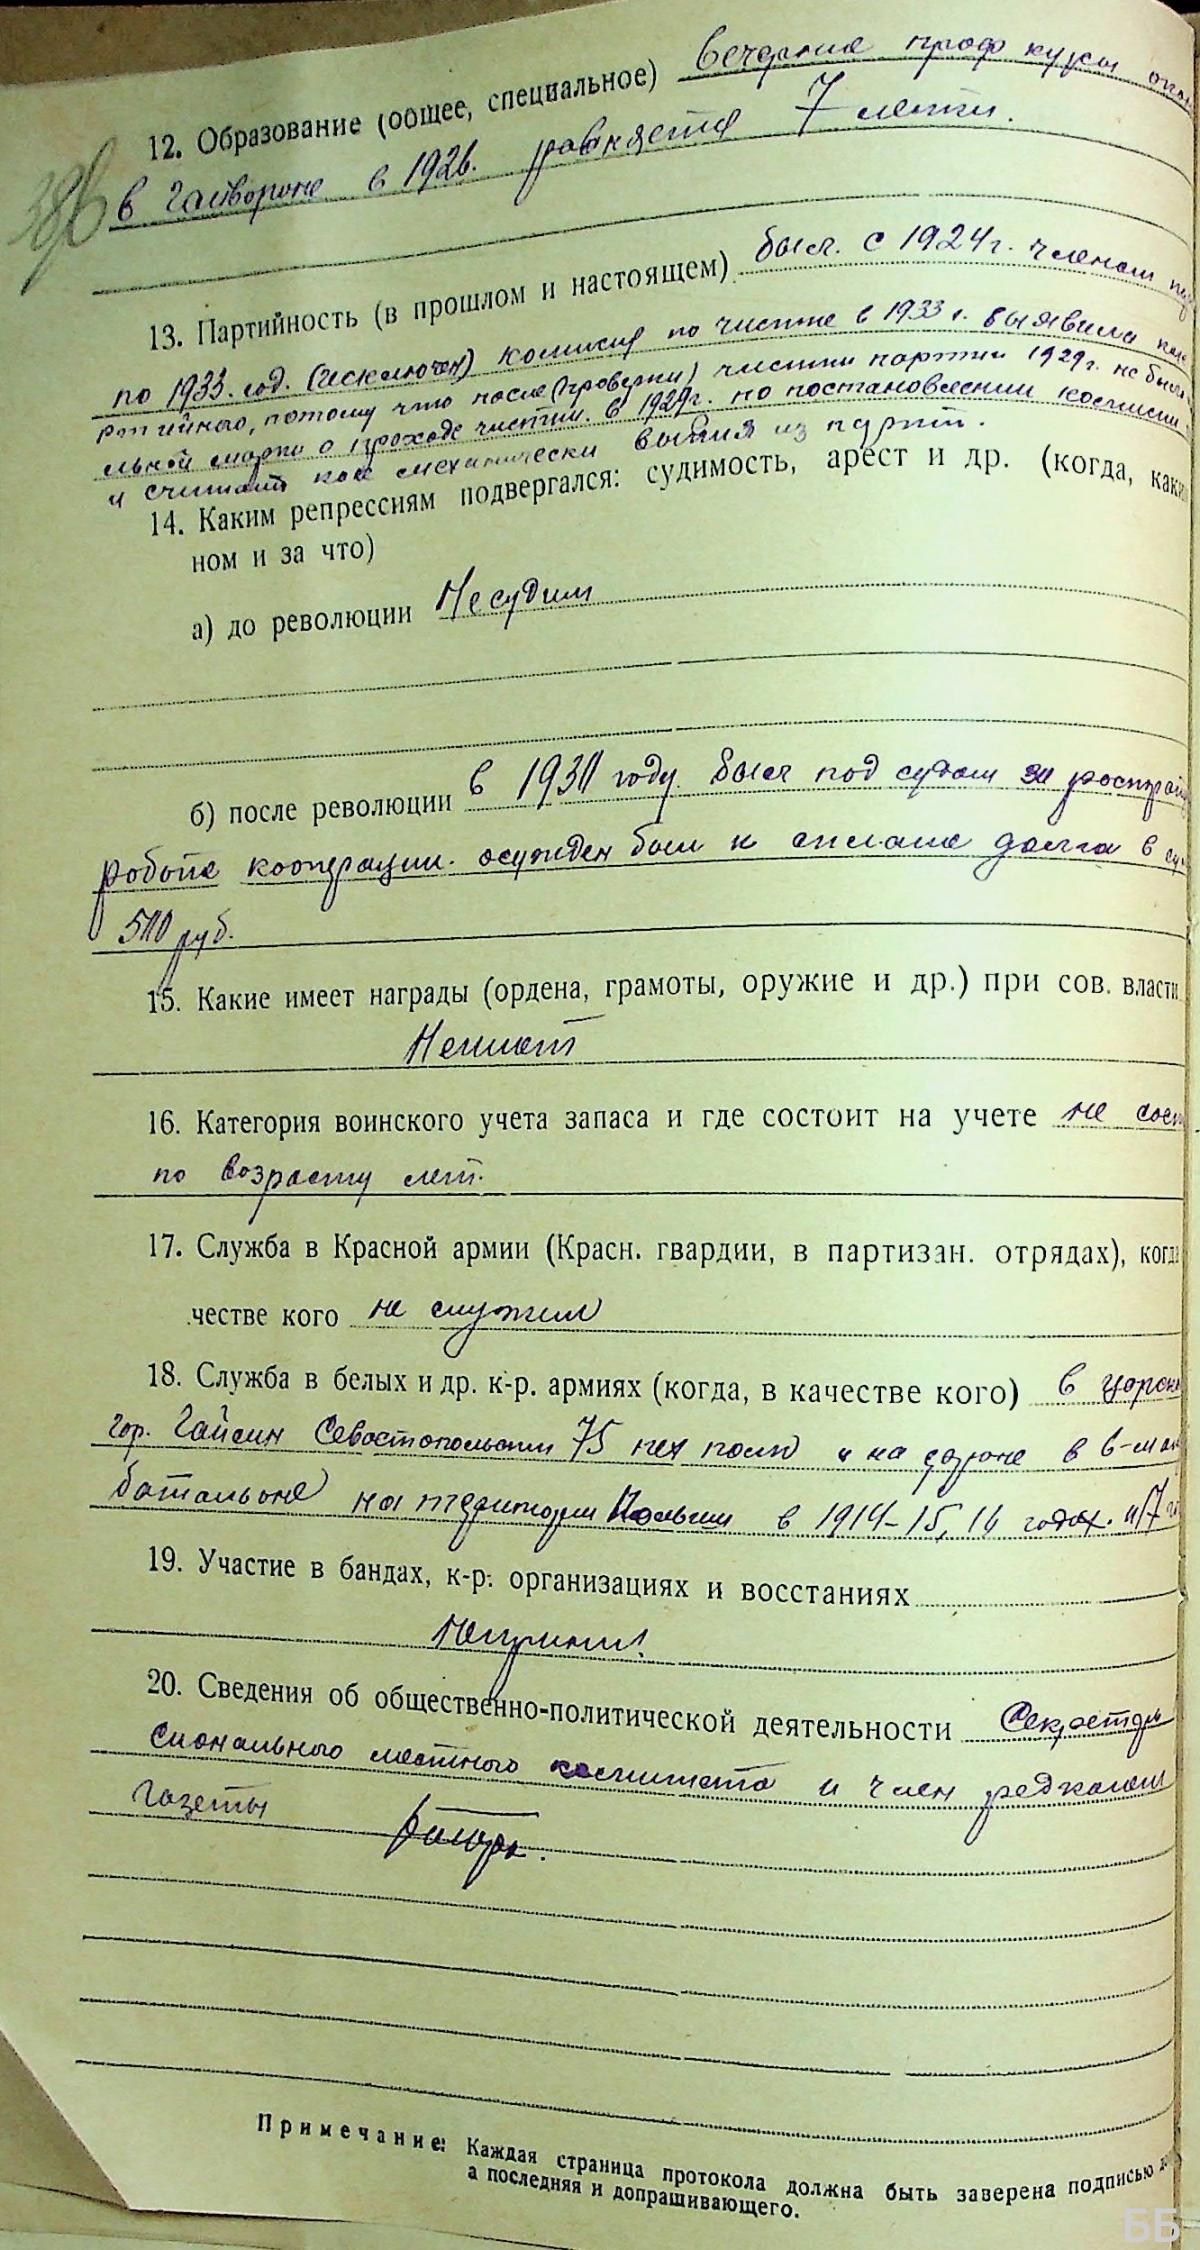 12. Образование (общее, специальное) вечерние проф курсы
в Гайвороне в 1926. ровняется 7 лети.
13. Партийность (в прошлом и настоящем) был. с 1924 г. членом
по 1933. год. (исключен) комисия по чистке в 1933 г. выявила
ртийного, потому что после (проверки) чистки партии 1929 г. не было
льной марки о проходе чистки. в 1929 г. по постановлении комисии
и считают как механически выбыл из парти.
14. Каким репрессиям подвергался: судимость, арест и др. (когда, каки
ном и за что)
а) до революции Несудим
б) после революции в 1930 году был под судом за
роботе кооперации. осужден был к сплате долга в
500 руб.
15. Какие имеет награды (ордена, грамоты, оружие и др.) при сов. власти
Неимет
16. Категория воинского учета запаса и где состоит на учете не сост
по возрасту лет.
17. Служба в Красной армии (Красн. гвардии, в партизан. отрядах), когда
честве кого не служил
18. Служба в белых и др. к-р. армиях (когда, в качестве кого) в царск
гор. Гайсин Севостопольский 75 пех полк и на фроне в 6-м
батальоне на територии Польши в 1914-15, 16 годах. и 17
19. Участие в бандах, к-р. организациях и восстаниях
20. Сведения об общественно-политической деятельности Секретарь
сионального местного комитета и член редколеги
газеты
Примечание: Каждая страница протокола должна быть заверена подписью
а последняя и допрашивающего.
ББ